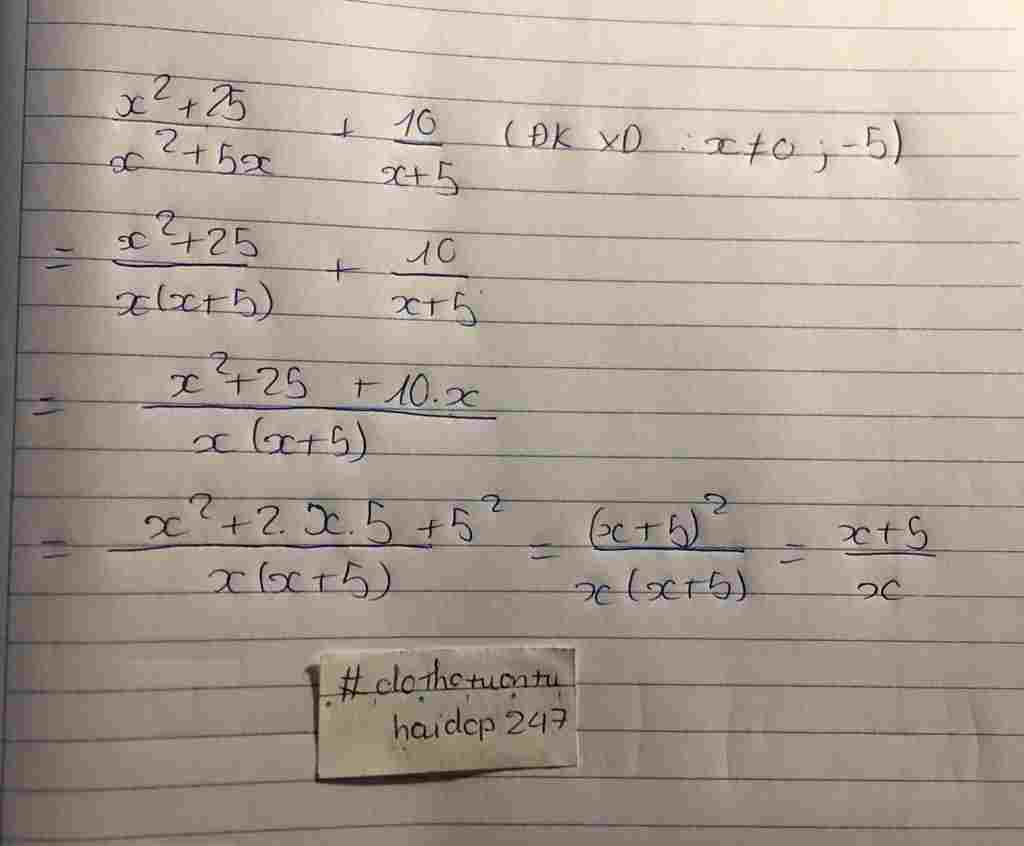 x²+25 / x²+5x + 10 / x+5 (ĐK XD : x≠0 ; -5)
= x²+25 / x(x+5) + 10 / x+5
= x²+25 +10.x / x(x+5)
= x²+2.x.5+5² / x(x+5) = (x+5)² / x(x+5) = x+5 / x
#
haidcp 247